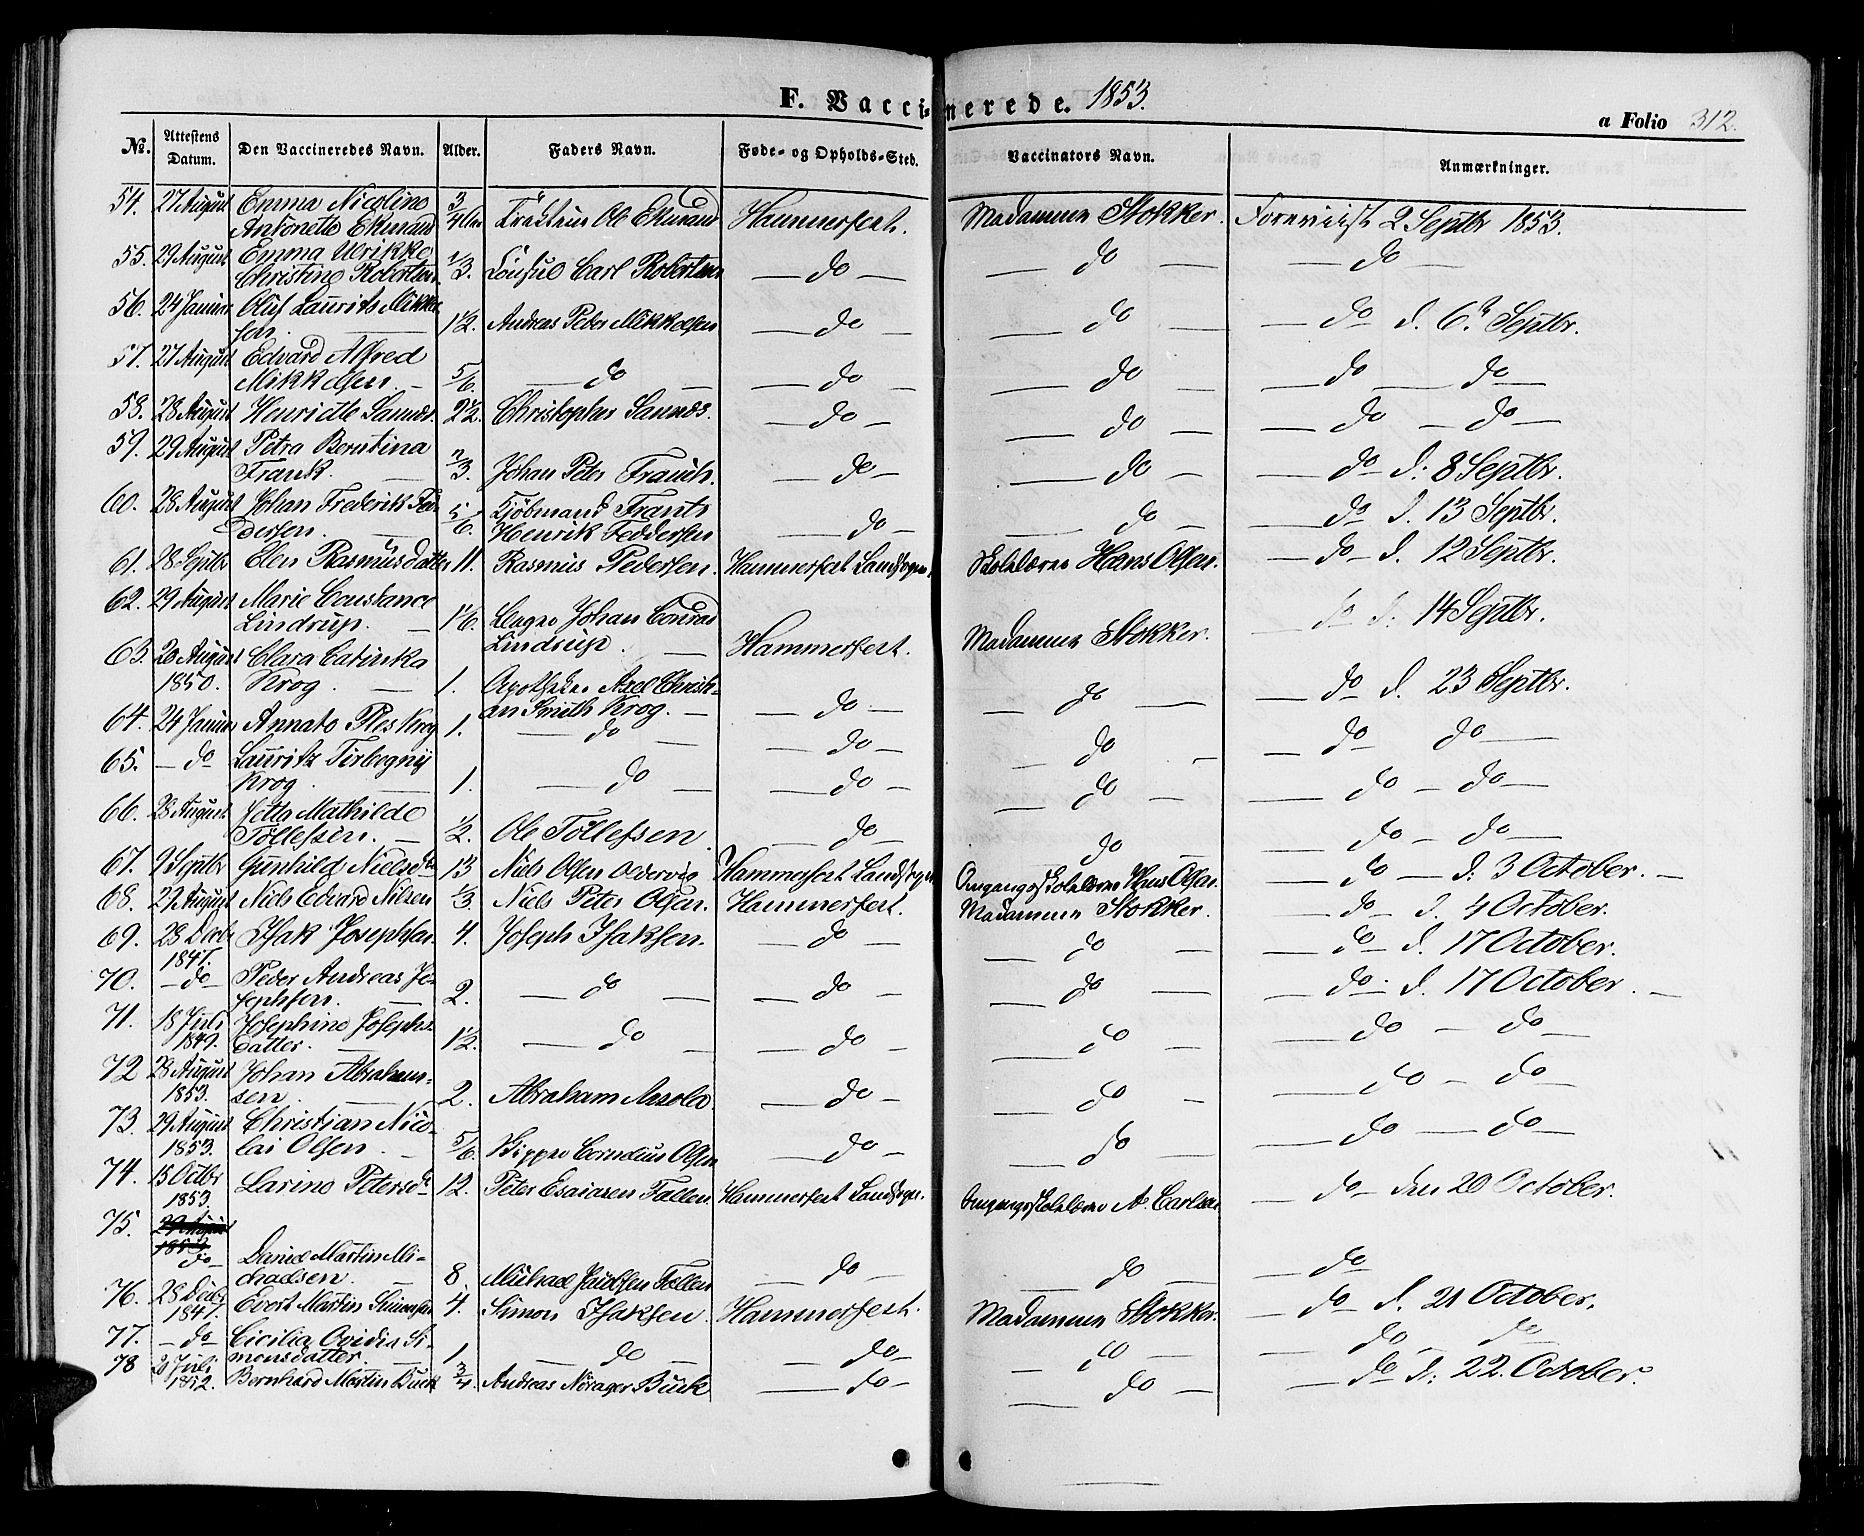 F. Vaccinerede. 1853.
a Folio 312.
No. Attestens Datum. Den Vaccineredes Navn. Alder. Faders Navn. Føde- og Opholds-Sted. Vaccinators Navn. Anmærkninger.
54. 27 August Emma Nicoline 3/4 Ole Ekmand Hammerfest. Madamme Stokker. Foreviist 2 Septbr 1853.
Antonette Ekmand
55. 29 August Emma Ulrikke 1/3. Consul Carl Robertsen — do — — do — — do —
Christine Robertsen
56. 24 Januar Oluf Laurits Mikkel
sen. 1 1/2. Andreas Peder Mikkelsen — do — — do — — do d. 6te Septbr.
57. 27 August Edvard Alfred
Mikkelsen. — 5/6. — do — — do — — do — — do — do —
58. 28 August Henriette Sannes. 2 1/2. Christopher Sannes. — do — — do — — do — do —
59. 29 August Petra Berntina
Frank. — 2/3. Johan Peter Franch. — do — — do — — do d. 8 Septbr.
60. 28 August Johan Frederik Fed 5/6. Kjøbmand Frants — do — — do — — do d. 13 Septbr.
dersen. — Henrik Feddersen
61. 28 Septbr Elen Rasmusdatter 11. Rasmus Pedersen. Hammerfest Landsogn. Skolelærer Hans Olsen. — do — d. 12 Septbr.
62. 29 August Marie Constance 1/6. Johan Conrad do d. 14 Septbr.
Lindrup. — Lindrup. — Hammerfest. Madamme Stokker.
63. 20 August Clara Catinka
1850. Krog. — 1. Apotheker Axel Christi- — do — — do — — do d. 23 Septbr.
an Smith Krog. —
64. 24 Januar Annato Ples Krog 1. — do — — do — — do — — do do —
65. — do Lauritz Tirbogny
Krog. 1. — do — — do — — do — — do — do —
66. 28 August Jetta Mathilde
Tøllefsen. — 1/2. Ole Tøllefsen. — do — — do — — do — do —
67. 2 Septbr Gunhild Nielsdr 13 Niels Olsen Hammerfest Landsogn Omgangsskolelærer Hans Olsen. — do — d. 3 October. —
68. 29 August Niels Edvard Nilsen 1/3. Niels Peter Olsen. Hammerfest. Madamme Stokker. — do — d. 4 October.
69. 28 Decbr Isak Josephsen. 4. Joseph Isaksen. — do — — do — — do — d. 17 October.
1847.
70. — do — Peder Andreas Jo-
sephsen. — 2. — do — — do — — do — — do — d. 17 October. —
71. 18 Juli Josephine Josephs-
1849. datter. — 1 1/2. — do — — do — — do — — do — do —
72 28 August Johan Abraham-
1853. sen. — 2. Abraham — do — — do — — do — do —
73. 29 August Christian Nico-
1853. lai Olsen. — 5/6. Skipper Cornelius Olsen — do — — do — — do — do —
74. 15 Octbr Larine Petersdr 12. Peter Esaiasen Hammerfest Landsogn. Omgangsskolelærer A. Carlsen — do — den 20 October.
1853.
75. 29 August
1853
do — Daniel Martin Mi-
chaelsen. — 8. Michael — do — — do — — do
76. 28 Decbr Evert Martin Simonsen 4. Simon Isaksen. Hammerfest. Madamme Stokker. — do — d. 21 October.
1847.
77. — do — Cicilia Ovidia Si-
monsdatter. — 1 — do — — do — — do — — do — do
78 2 Juli Bernhard Martin Buck 3/4. Andreas Norager Buck — do — — do — — do d. 22. October.
1852.